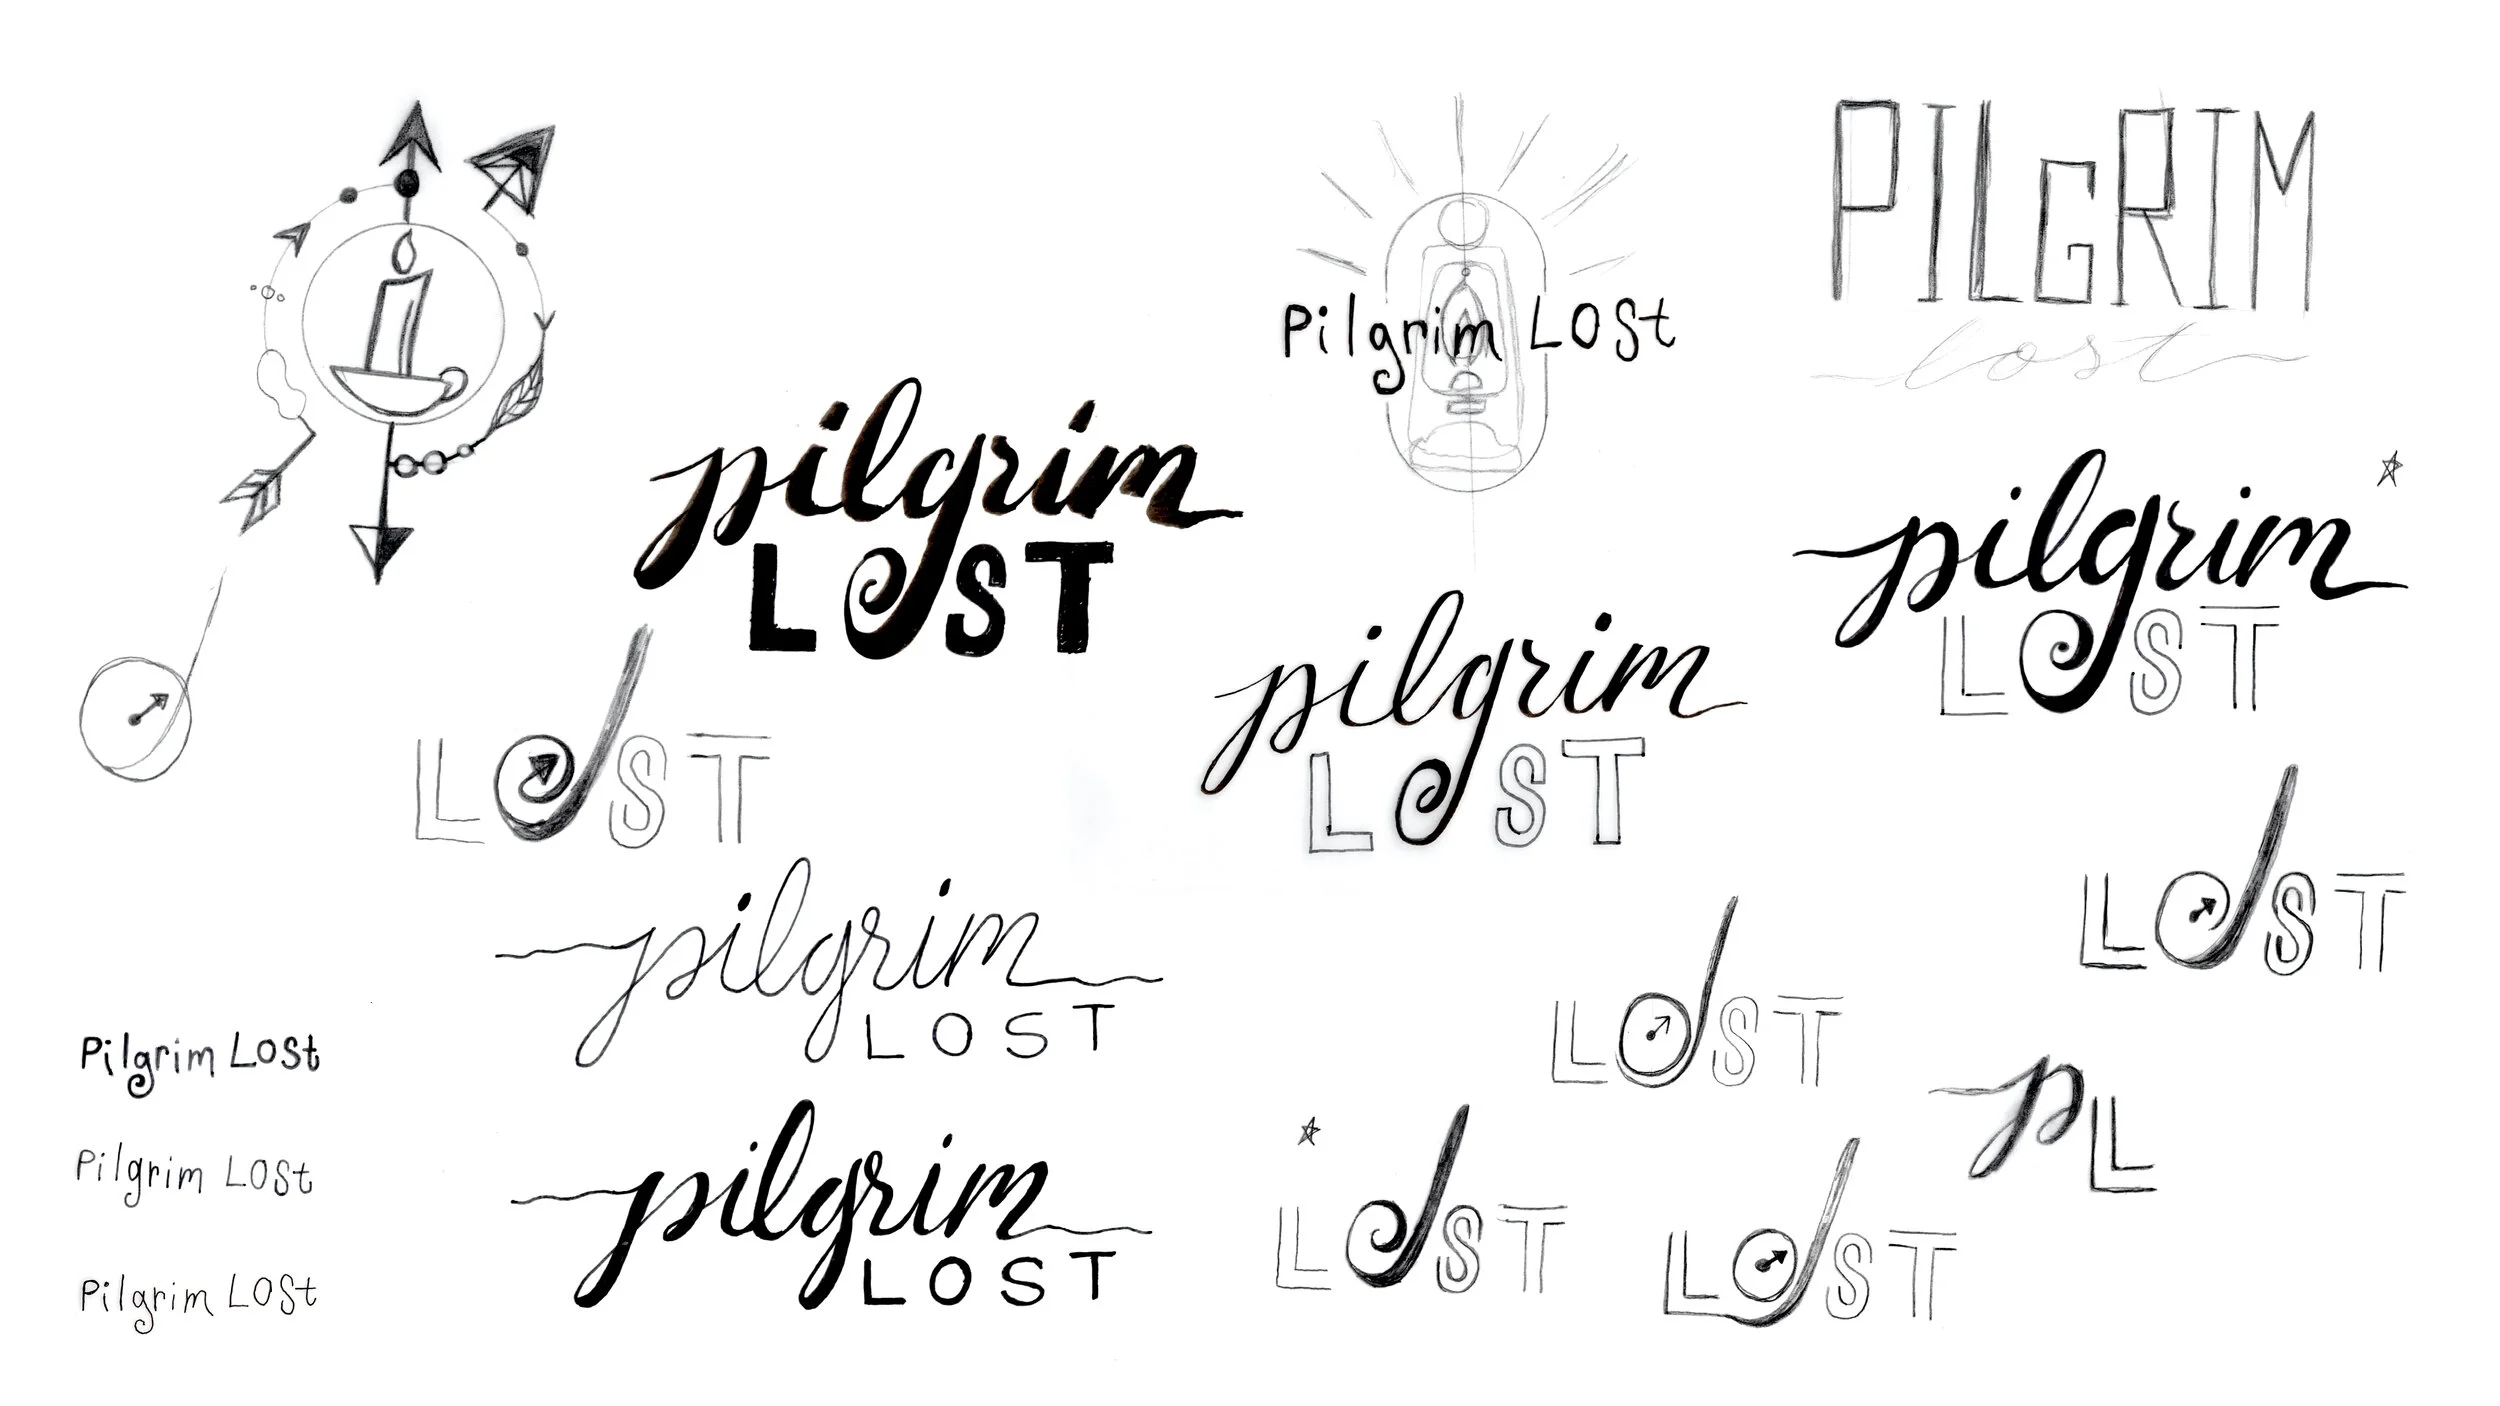 PILGRIM
lost
Pilgrim Lost
pilgrim
LOST
pilgrim
LOST
pilgrim
LOST
LOST
pilgrim
LOST
LOST
LOST
Pilgrim Lost
PL
Pilgrim Lost
pilgrim
LOST
LOST
LOST
Pilgrim Lost